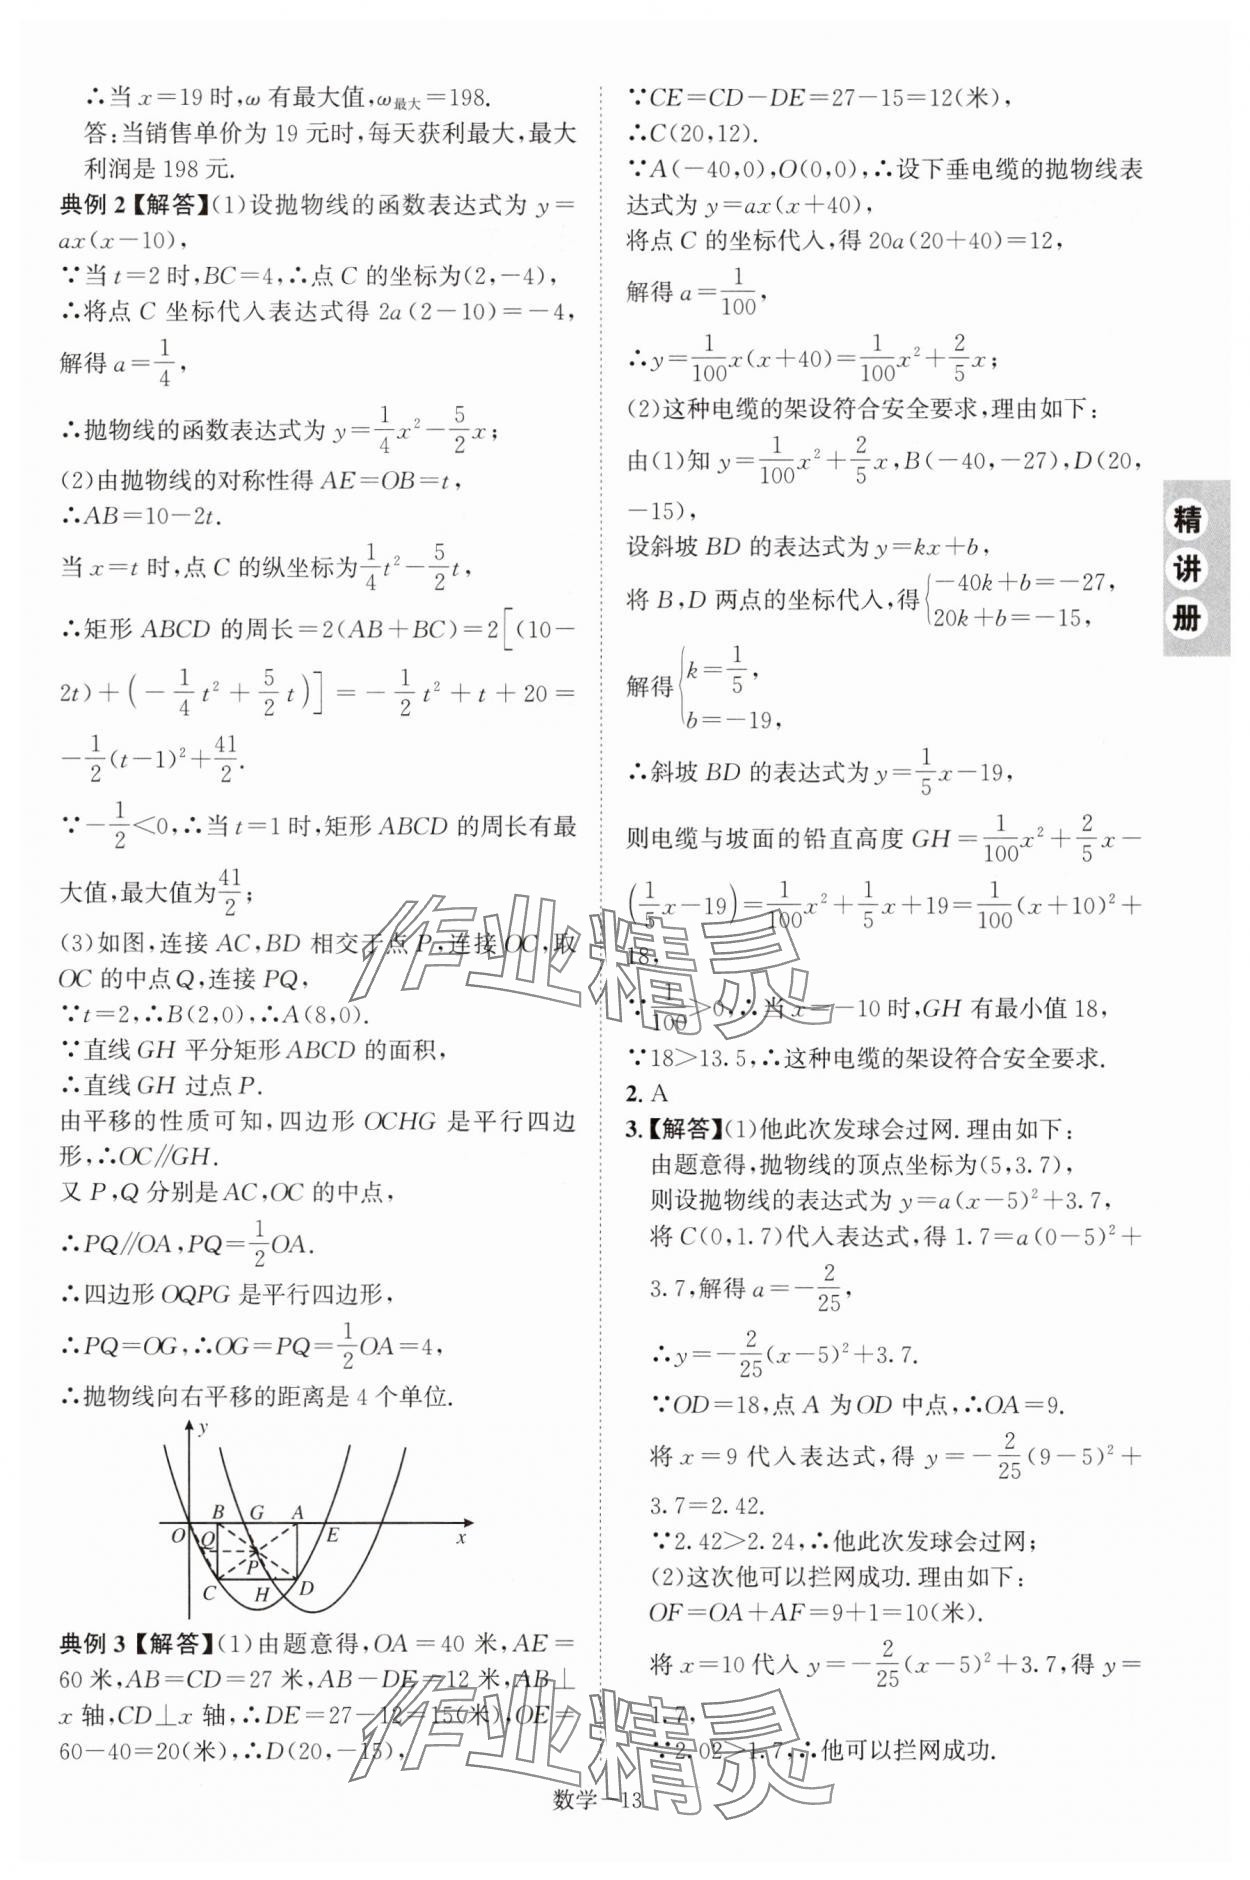 ∴当 x=19 时,ω 有最大值,ω最大=198.
答:当销售单价为 19 元时,每天获利最大,最大
利润是 198 元.
典例 2【解答】(1)设抛物线的函数表达式为 y=
ax(x-10),
∵当 t=2 时,BC=4,∴点 C 的坐标为(2,-4),
∴将点 C 坐标代入表达式得 2a(2-10)=-4,
解得 a=1/4,
∴抛物线的函数表达式为 y=1/4x²-5/2x;
(2)由抛物线的对称性得 AE=OB=t,
∴AB=10-2t.
当 x=t 时,点 C 的纵坐标为1/4t²-5/2t,
∴矩形 ABCD 的周长=2(AB+BC)=2[(10-
2t)+(-1/4t²+5/2t)]=-1/2t²+t+20=
-1/2(t-1)²+41/2.
∵-1/2<0,∴当 t=1 时,矩形 ABCD 的周长有最
大值,最大值为41/2;
(3)如图,连接 AC,BD 相交于点 P,连接 OC,取
OC 的中点 Q,连接 PQ,
∵t=2,∴B(2,0),∴A(8,0).
∵直线 GH 平分矩形 ABCD 的面积,
∴直线 GH 过点 P.
由平移的性质可知,四边形 OCHG 是平行四边
形,∴OC∥GH.
又 P,Q 分别是 AC,OC 的中点,
∴PQ∥OA,PQ=1/2OA.
∴四边形 OQPG 是平行四边形,
∴PQ=OG,∴OG=PQ=1/2OA=4,
∴抛物线向右平移的距离是 4 个单位.
y
B G A
O Q E x
P
C H D
典例 3【解答】(1)由题意得,OA=40 米,AE=
60 米,AB=CD=27 米,AB-DE=12 米,AB⊥
x 轴,CD⊥x 轴,∴DE=27-12=15(米),OE=
60-40=20(米),∴D(20,-15),
∵CE=CD-DE=27-15=12(米),
∴C(20,12).
∵A(-40,0),O(0,0),∴设下垂电缆的抛物线表
达式为 y=ax(x+40),
将点 C 的坐标代入,得 20a(20+40)=12,
解得 a=1/100,
∴y=1/100x(x+40)=1/100x²+2/5x;
(2)这种电缆的架设符合安全要求,理由如下:
由(1)知 y=1/100x²+2/5x,B(-40,-27),D(20,
-15),
设斜坡 BD 的表达式为 y=kx+b,
将 B,D 两点的坐标代入,得{-40k+b=-27,
20k+b=-15,
解得{k=1/5,
b=-19,
∴斜坡 BD 的表达式为 y=1/5x-19,
则电缆与坡面的铅直高度 GH=1/100x²+2/5x-
(1/5x-19)=1/100x²+1/5x+19=1/100(x+10)²+
18,
∵1/100>0,∴当 x=-10 时,GH 有最小值 18,
∵18>13.5,∴这种电缆的架设符合安全要求.
2. A
3.【解答】(1)他此次发球会过网.理由如下:
由题意得,抛物线的顶点坐标为(5,3.7),
则设抛物线的表达式为 y=a(x-5)²+3.7,
将 C(0,1.7)代入表达式,得 1.7=a(0-5)²+
3.7,解得 a=-2/25,
∴y=-2/25(x-5)²+3.7.
∵OD=18,点 A 为 OD 中点,∴OA=9.
将 x=9 代入表达式,得 y=-2/25(9-5)²+
3.7=2.42.
∵2.42>2.24,∴他此次发球会过网;
(2)这次他可以拦网成功.理由如下:
OF=OA+AF=9+1=10(米).
将 x=10 代入 y=-2/25(x-5)²+3.7,得 y=
1.7,
∵2.02>1.7,∴他可以拦网成功.
精讲册
数学－13
作业精灵
作业精灵